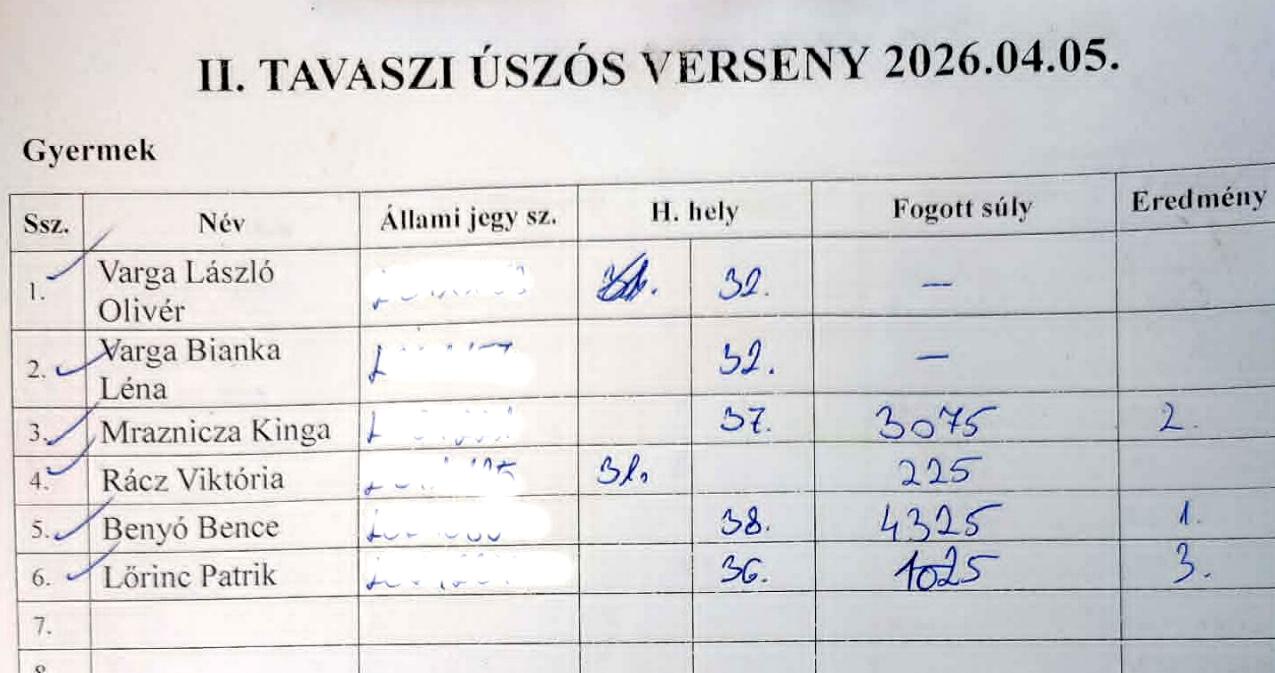 II. TAVASZI ÚSZÓS VERSENY 2026.04.05.
Gyermek
Ssz. Név Állami jegy sz. H. hely Fogott súly Eredmény
1. Varga László 32. —
Olivér
2. Varga Bianka 32. —
Léna
3. Mraznicza Kinga 37. 3075 2.
4. Rácz Viktória 31. 225
5. Benyó Bence 38. 4325 1.
6. Lőrinc Patrik 36. 1025 3.
7.